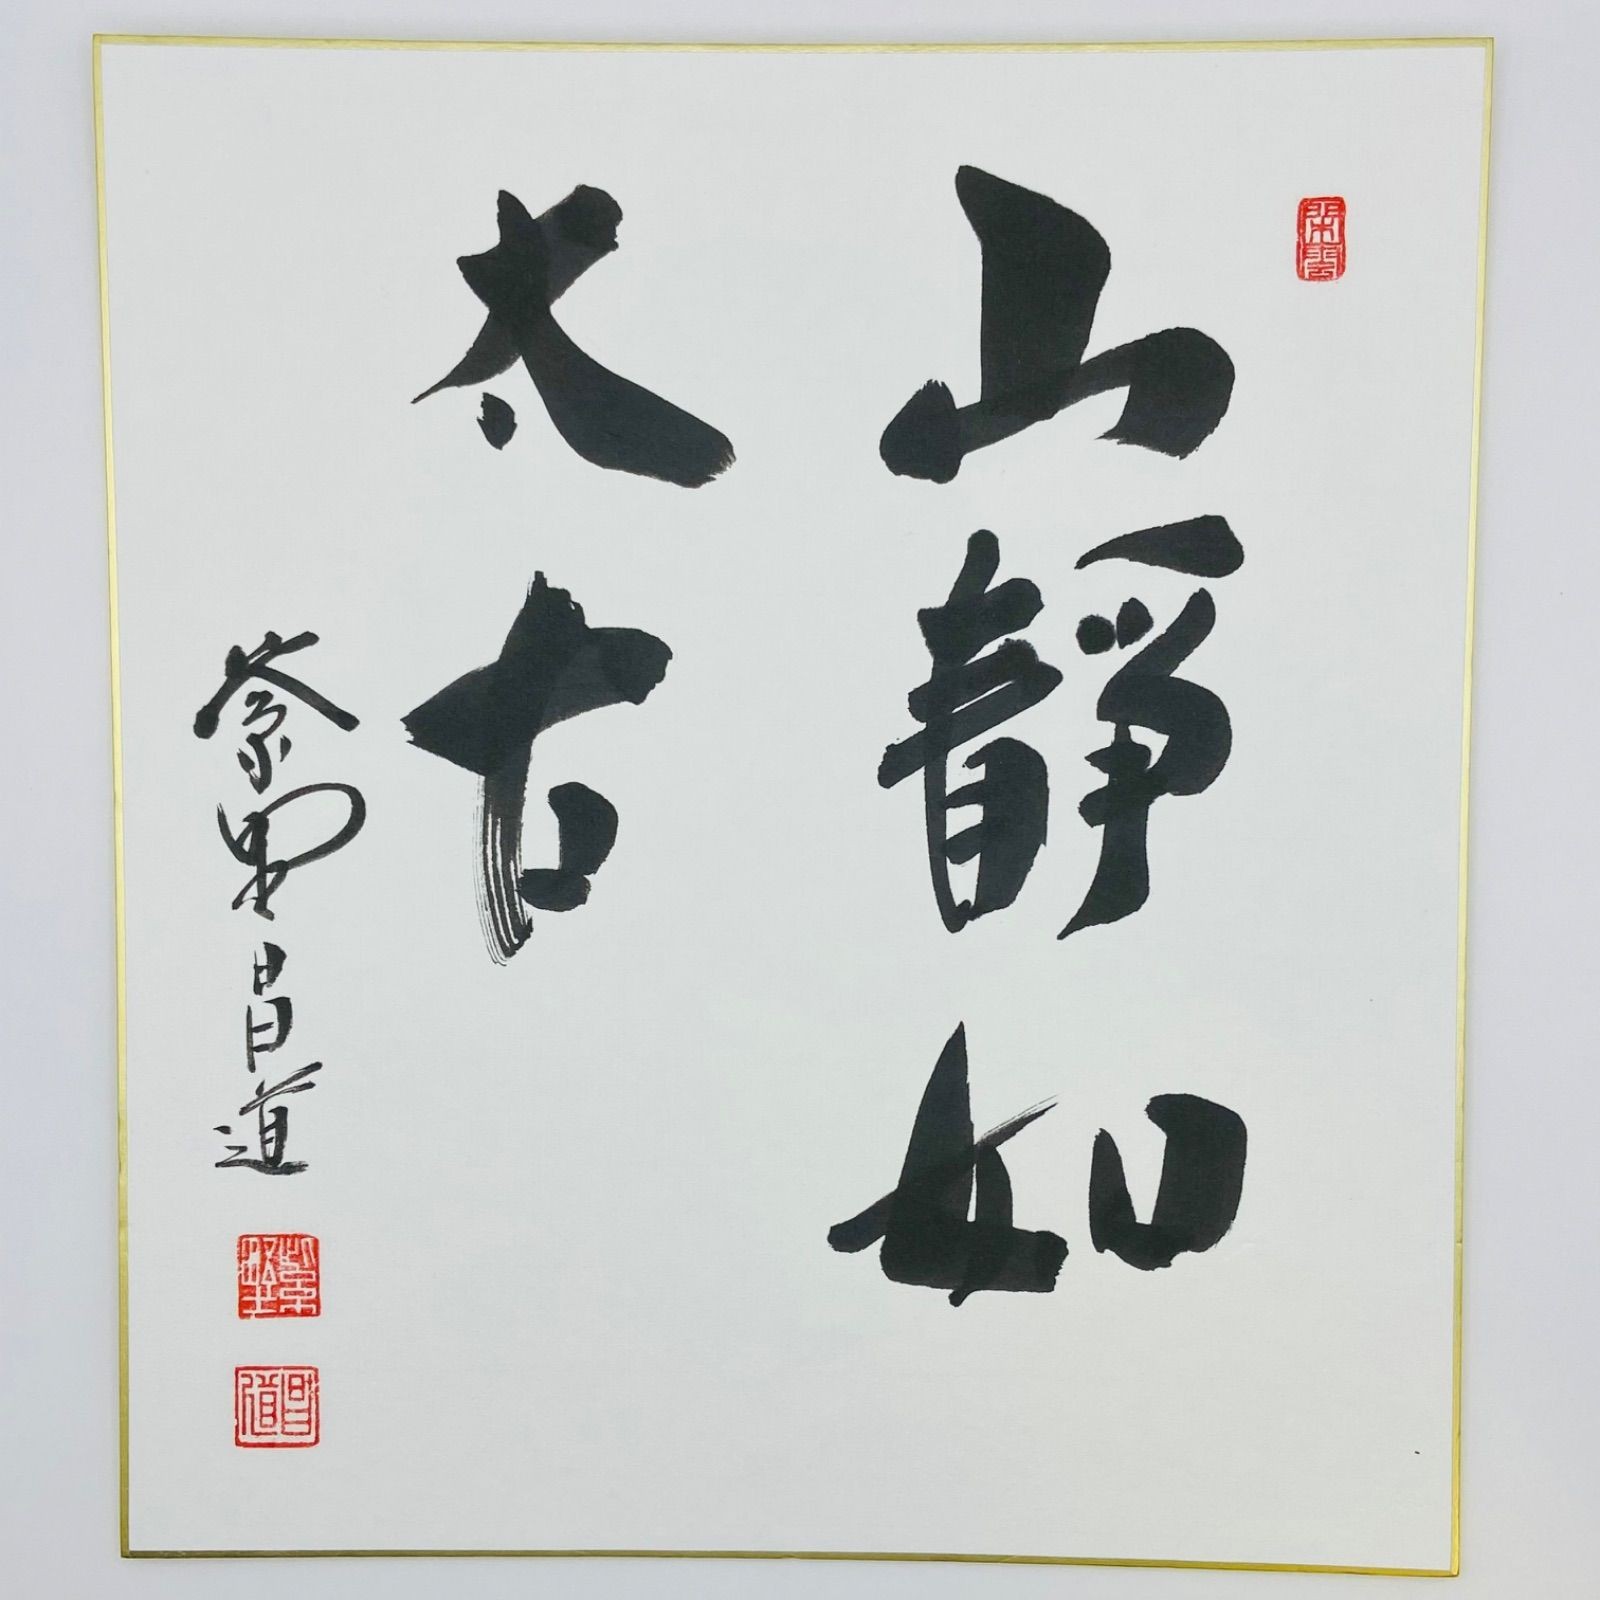 山靜如
太古
紫野昌道
紫野
昌道